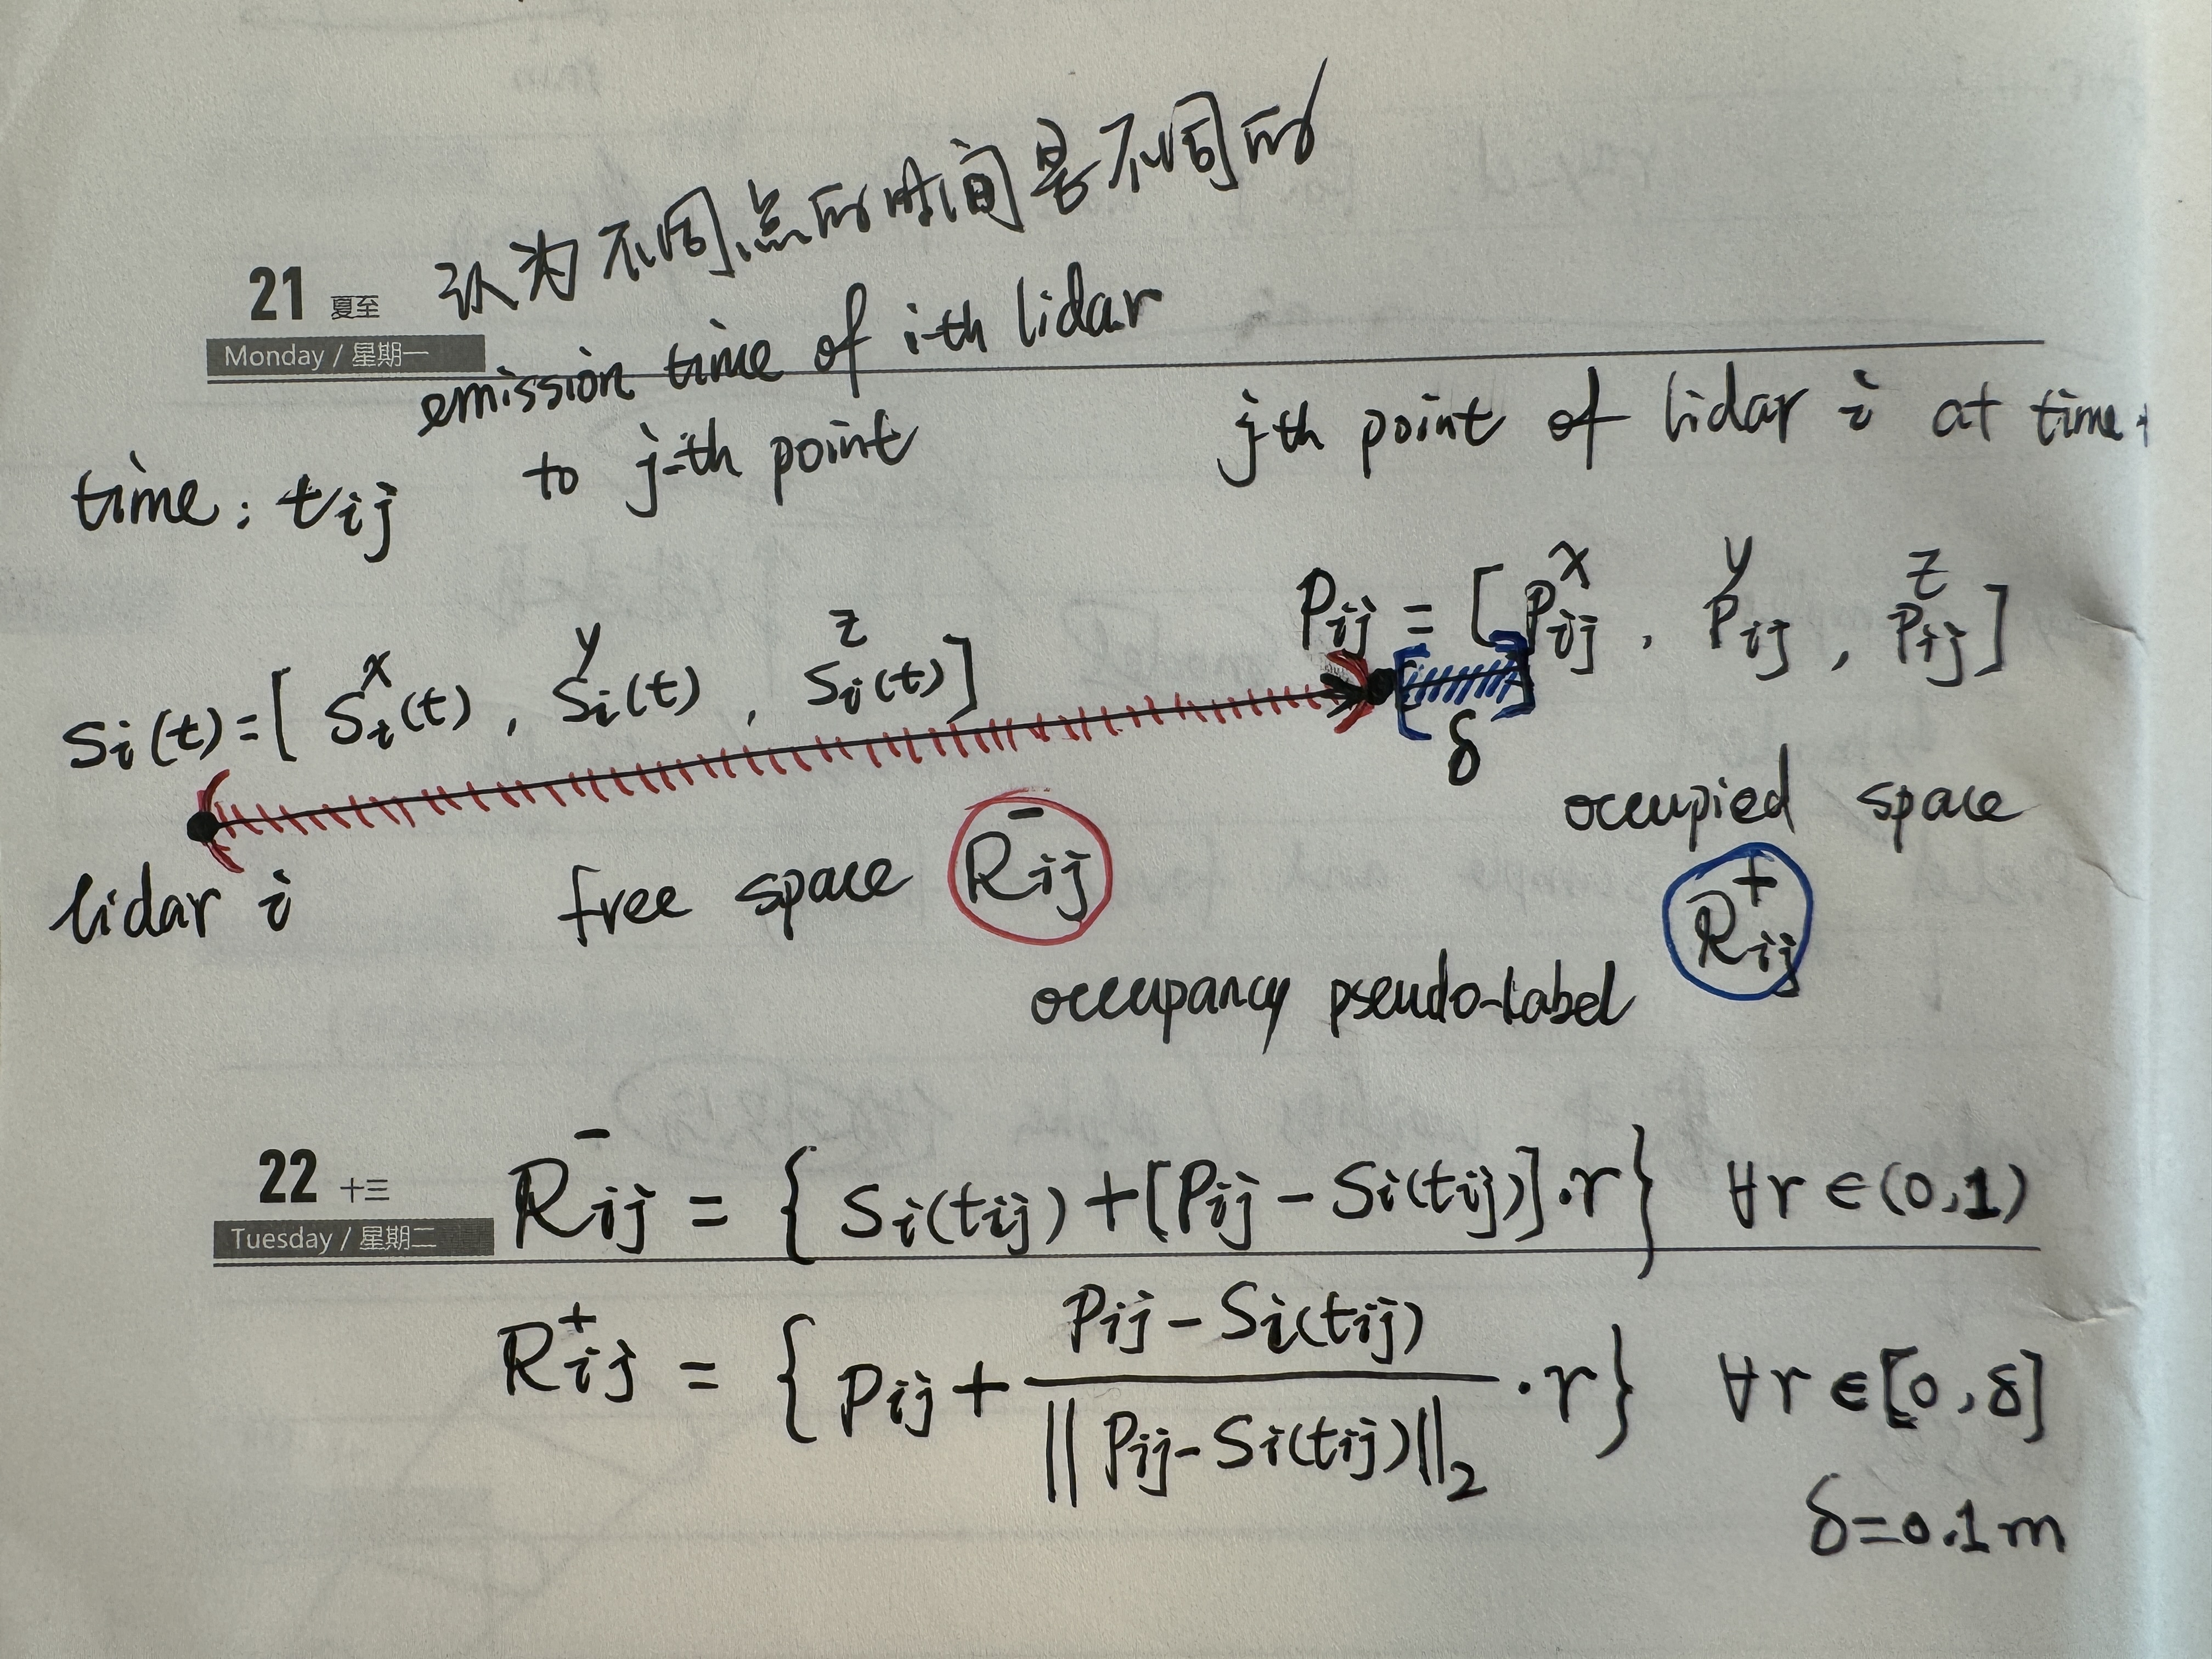 认为不同点的时间是不同的
21 夏至
Monday / 星期一
emission time of i-th lidar
to j-th point
j-th point of lidar i at time t
time: tij
Pij = [Pij^x, Pij^y, Pij^z]
Si(t)=[Si^x(t), Si^y(t), Si^z(t)]
δ
occupied space
Rij^+
lidar i
free space Rij^-
occupancy pseudo-label
22 十三
Tuesday / 星期二
Rij^- = {Si(tij)+[Pij-Si(tij)]·r} ∀r∈(0,1)
Rij^+ = {Pij + (Pij-Si(tij))/||Pij-Si(tij)||₂ ·r} ∀r∈[0,δ]
δ=0.1m